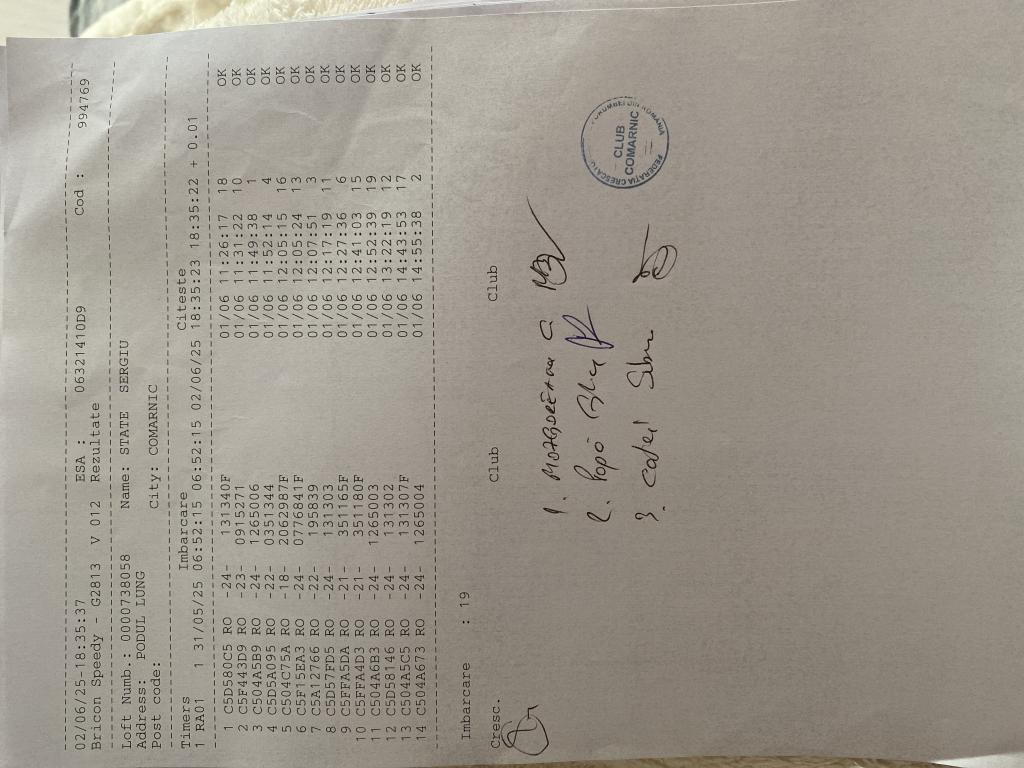 02/06/25-18:35:37 ESA : 06321410D9 Cod : 994769
Bricon Speedy - G2813 V 012 Rezultate
Loft Numb.: 0000738058 Name: STATE SERGIU
Address: PODUL LUNG
Post code: City: COMARNIC
Timers Imbarcare Citeste
1 RA01 1 31/05/25 06:52:15 06:52:15 02/06/25 18:35:23 18:35:22 + 0.01
1 C5D580C5 RO -24- 131340F 01/06 11:26:17 18 OK
2 C5F443D9 RO -23- 0915271 01/06 11:31:22 10 OK
3 C504A5B9 RO -24- 1265006 01/06 11:49:38 1 OK
4 C5D5A095 RO -22- 0351344 01/06 11:52:14 4 OK
5 C504C75A RO -18- 2062987F 01/06 12:05:15 16 OK
6 C5F15EA3 RO -24- 0776841F 01/06 12:05:24 13 OK
7 C5A12766 RO -22- 195839 01/06 12:07:51 3 OK
8 C5D57FD5 RO -24- 131303 01/06 12:17:19 11 OK
9 C5FFA5DA RO -21- 351165F 01/06 12:27:36 6 OK
10 C5FFA4D3 RO -21- 351180F 01/06 12:41:03 15 OK
11 C504A6B3 RO -24- 1265003 01/06 12:52:39 19 OK
12 C5D58146 RO -24- 131302 01/06 13:22:19 12 OK
13 C504A5C5 RO -24- 131307F 01/06 14:43:53 17 OK
14 C504A673 RO -24- 1265004 01/06 14:55:38 2 OK
Imbarcare : 19
Cresc. Club Club
1.
2. Popo
3.
CLUB
COMARNIC
FEDERATIA CRESCATO PORUMBEI DIN ROMANIA